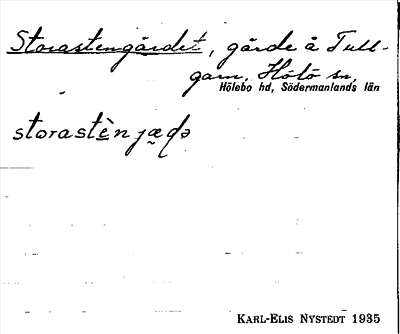 Storastengärdet, gärde å Tull-
garn, Hölö sn,
Hölebo hd, Södermanlands län
storastè̱n jæ̰ḍə
KARL-ELIS NYSTEDT 1935